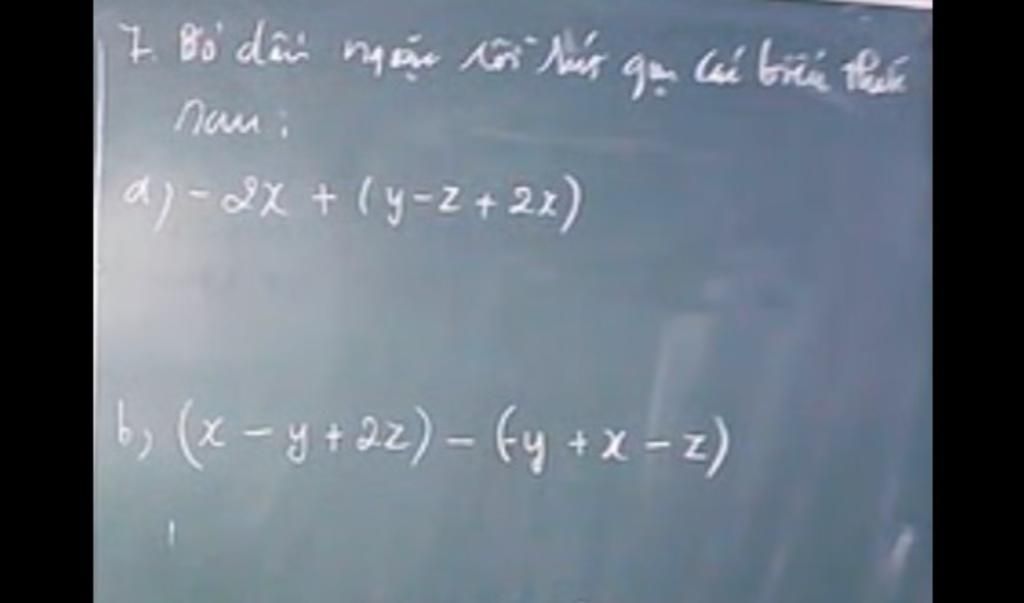 7. Bỏ dấu ngoặc rồi rút gọn các biểu thức
sau:
a) - 2x + (y - z + 2x)
b) (x - y + 2z) - (-y + x - z)